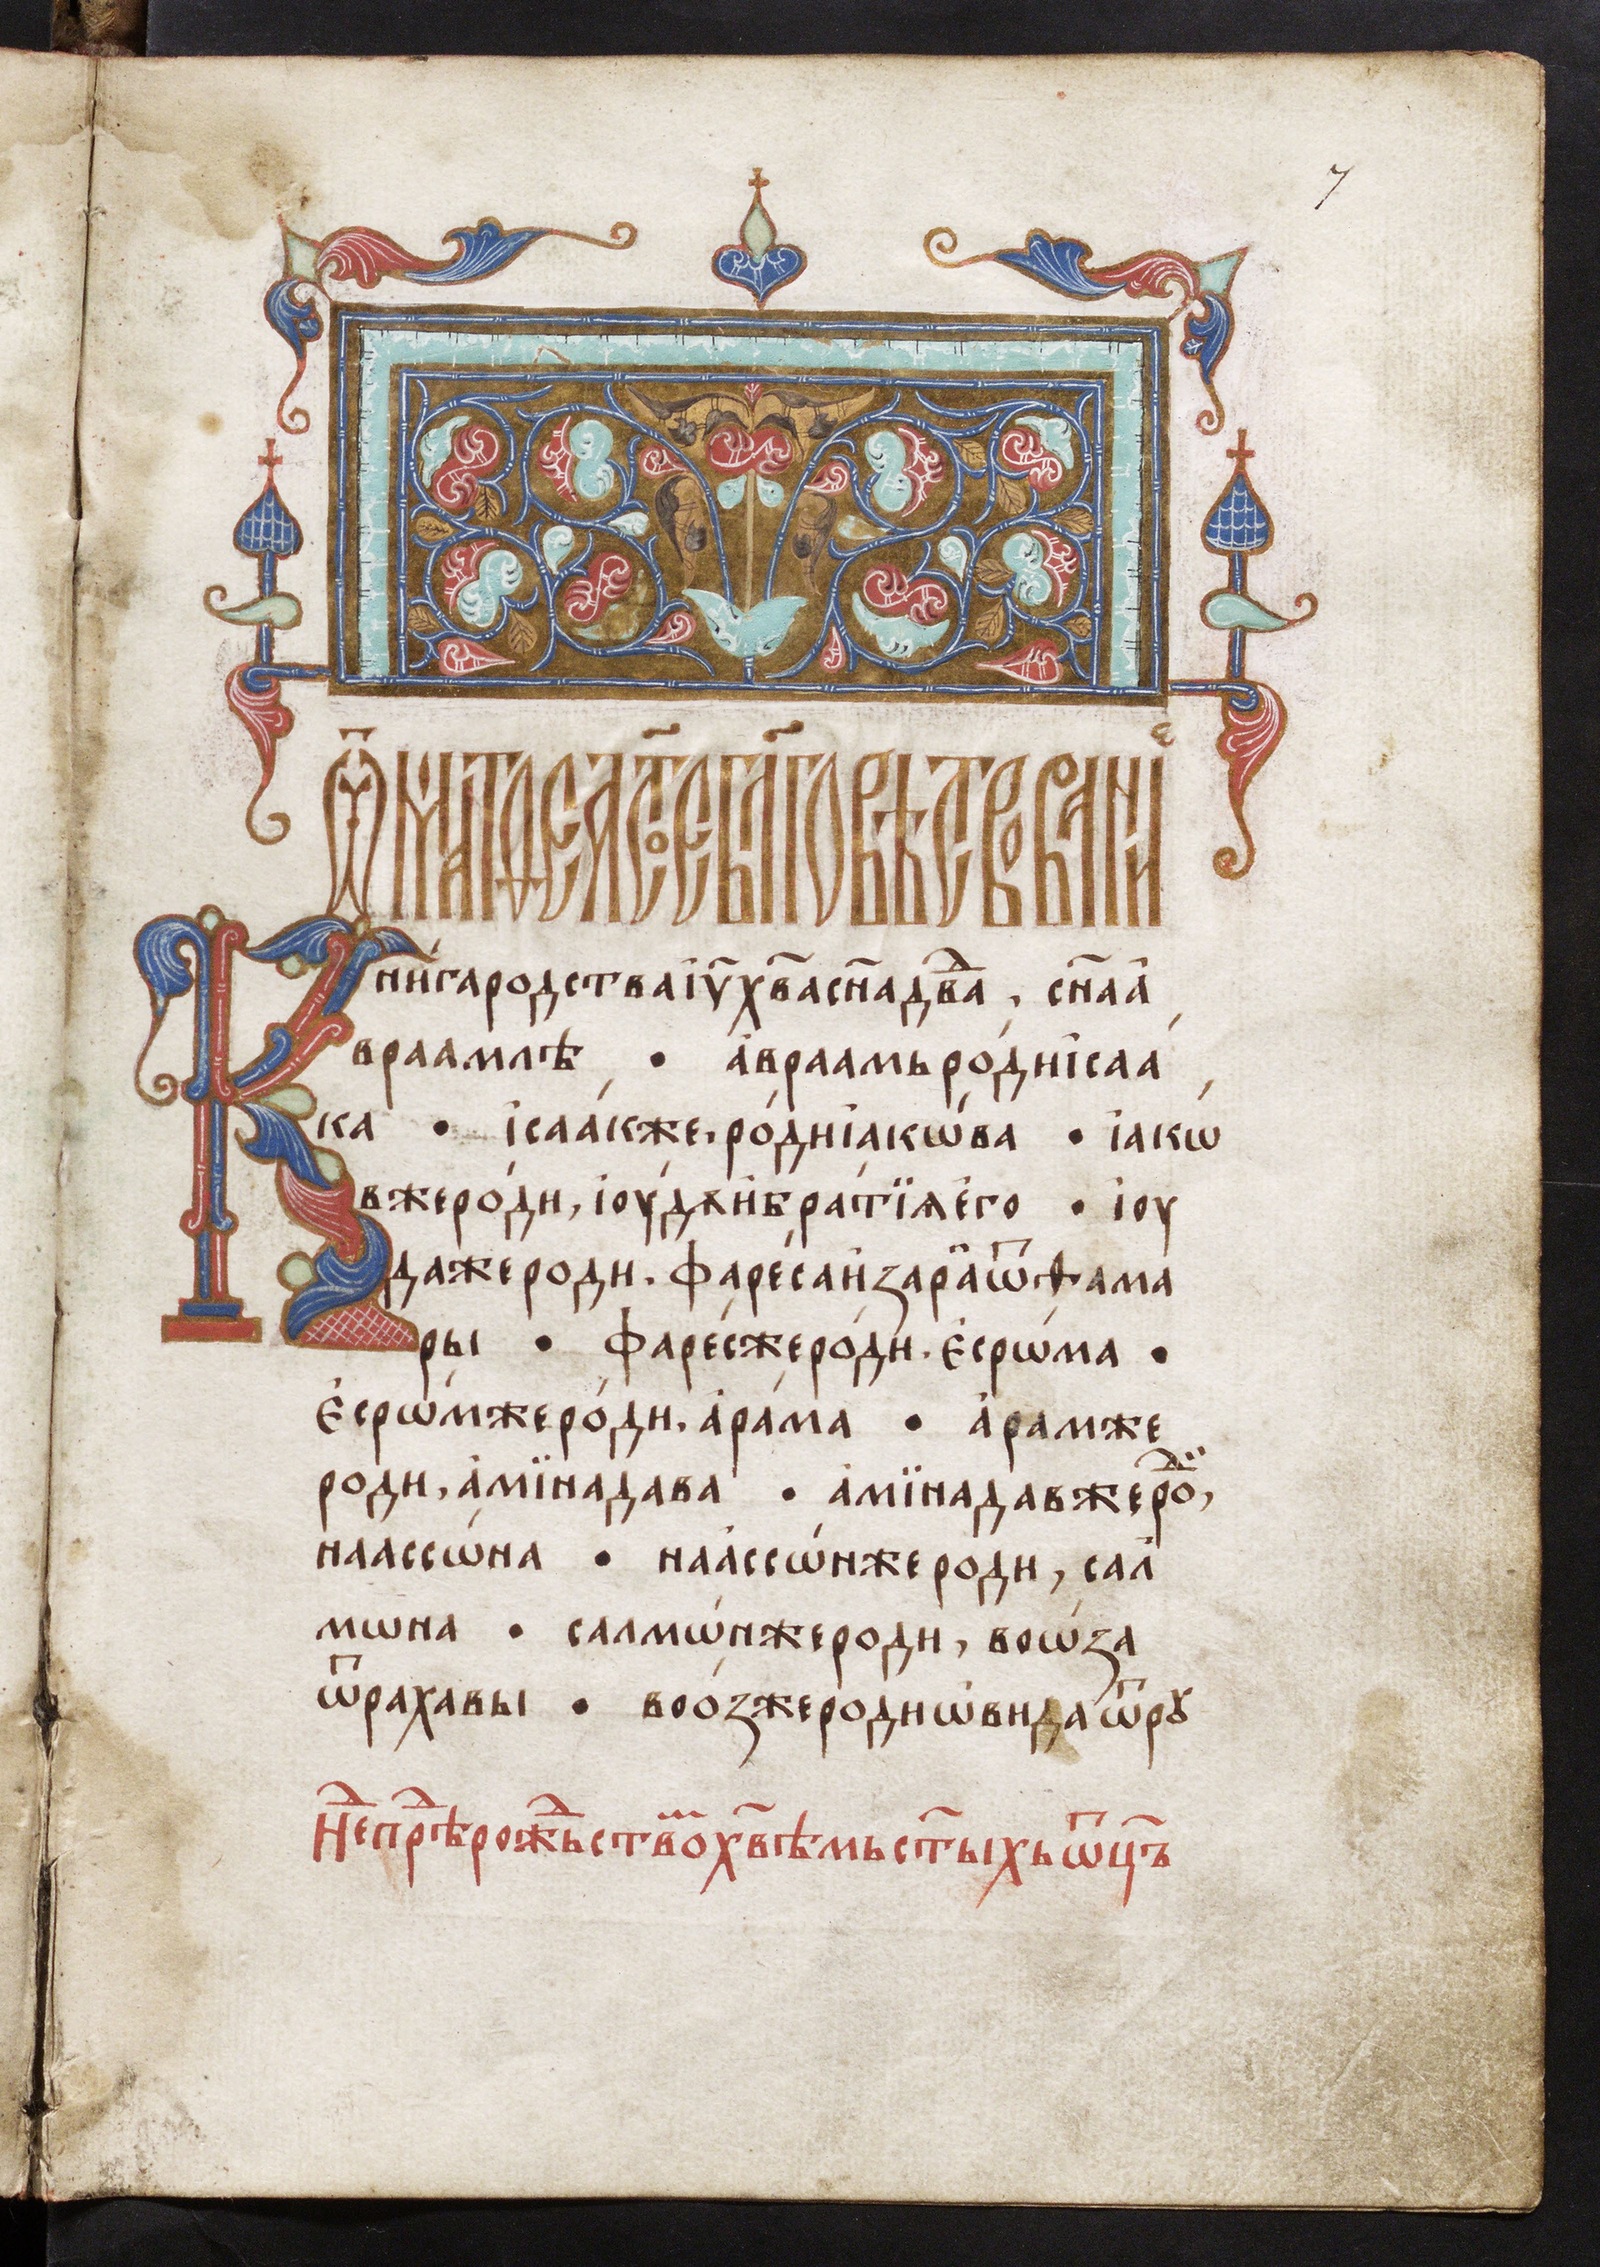 7
Ѿ маѳеа ст҃ое бл҃говѣствованіе
Книга родства іу҃ хв҃а сн҃а дв҃два, сн҃а а
враамлѣ • авраамь роди ісаа
ка • ісаак же, роди іакѡва • іакѡ
в же роди, іоудѫ и братїѧ его • іоу
да же роди. фареса и зара ѿ ѳама
ры • фарес же роди. есрѡма •
есрѡм же роди, арама • арам же
роди, амїнадава • амїнадав же родⷤ,
наассѡна • наассѡн же роди, сал
мѡна • салмѡн же роди, воѡза
ѿ рахавы • вооз же роди ѡвида ѿ рꙋ
Неⷣ прⷣѣ рожⷣьством хв҃ѣмь ст҃ыхь ѿц҃ъ